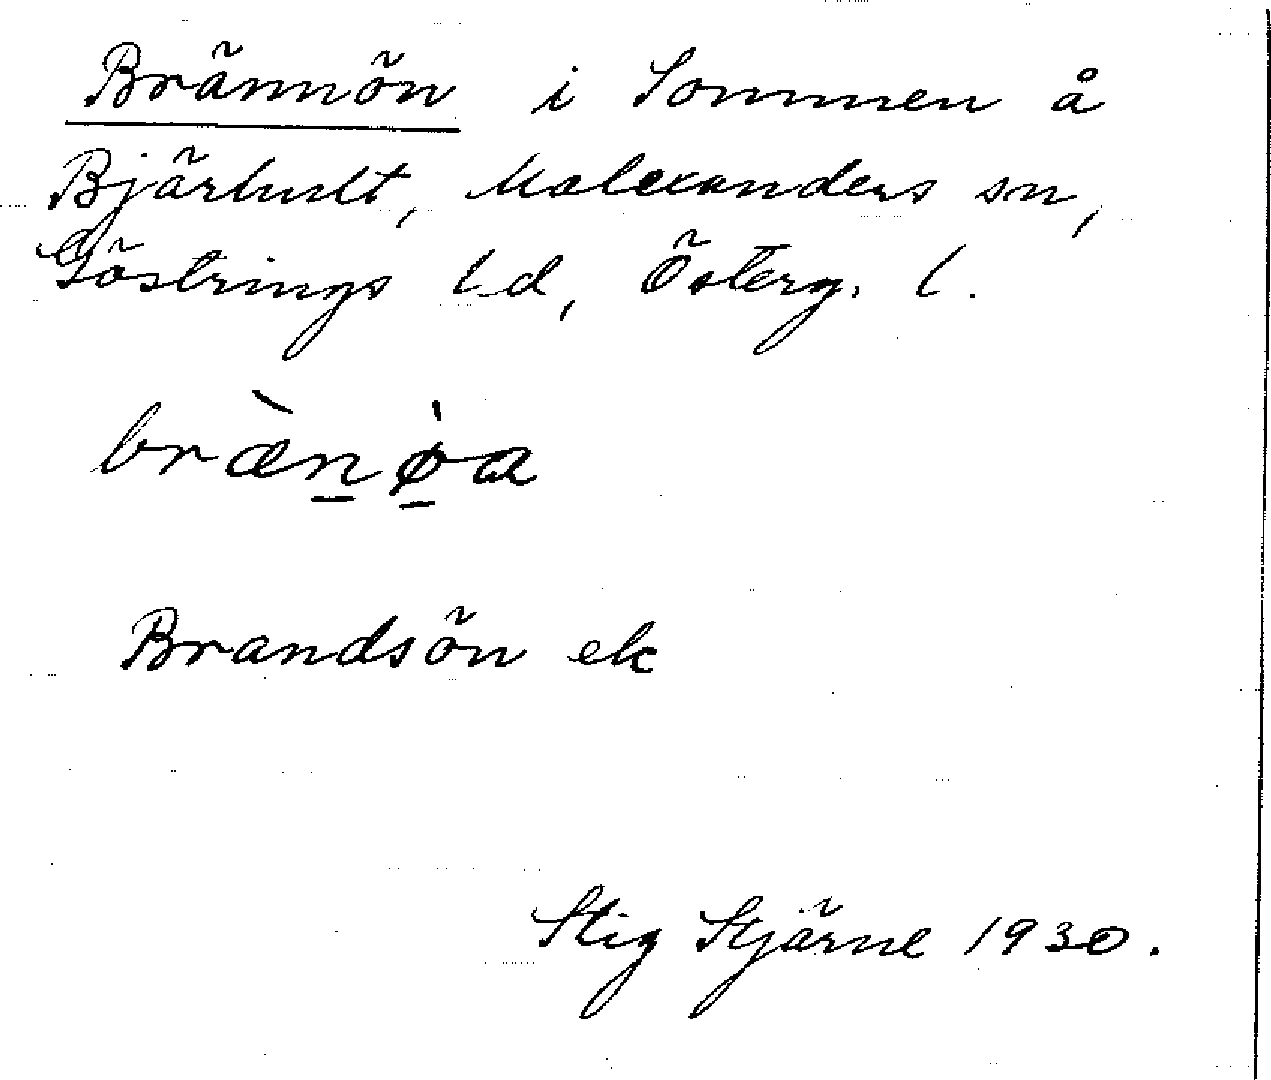 Brännön i Sommen å
Bjärhult, Malexanders sn,
Göstrings hd, Österg. l.
bræ̀n̲ø̲̍a
Brandsön ek
Stig Stjärne 1930.